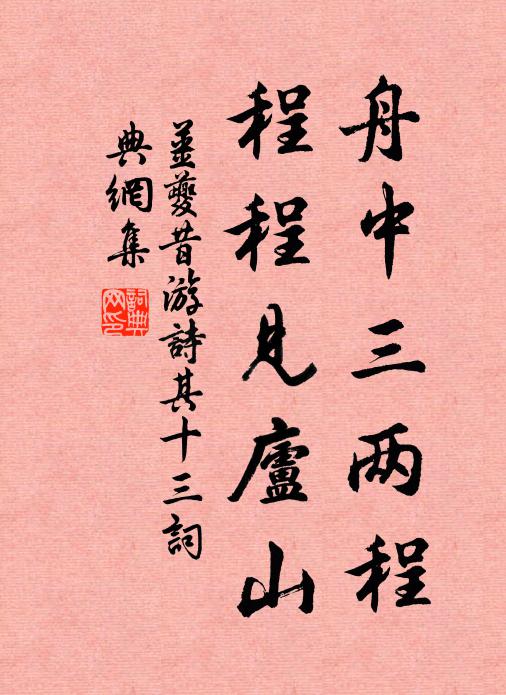 舟中三两程
程程見廬山
姜夔昔游詩其十三詞
典網集
詞典网印